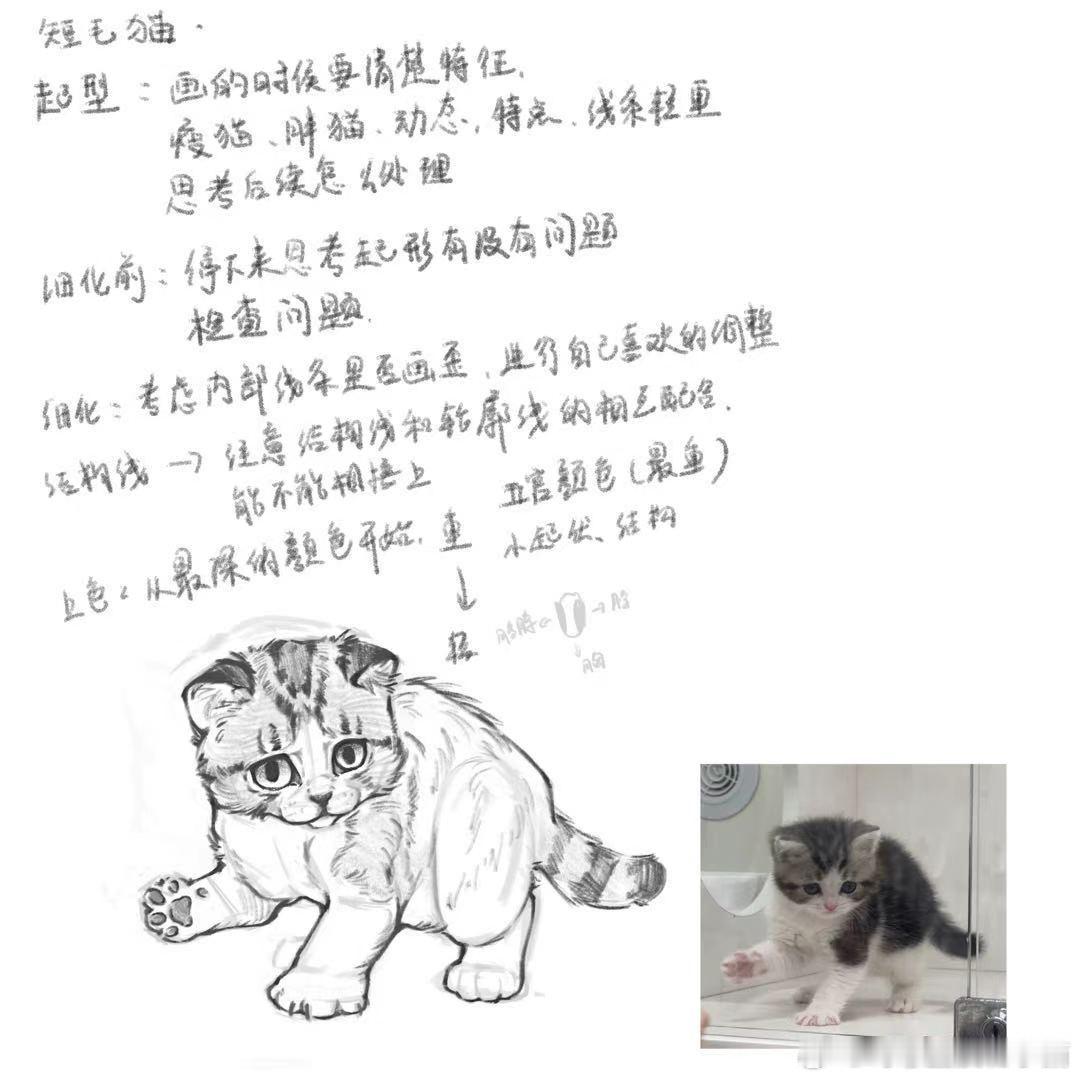 短毛猫.
起型：画的时候要清楚特征.
瘦猫、胖猫、动态,特点、线条轻重
思考后续怎么处理
细化前：停下来思考起形有没有问题
检查问题.
细化：考虑内部线条是否画歪、进行自己喜欢的调整
结构线→注意结构线和轮廓线的相互配合.
能不能相接上
五官颜色(最重)
上色：从最深的颜色开始. 重
小起伏、结构
↓
轻